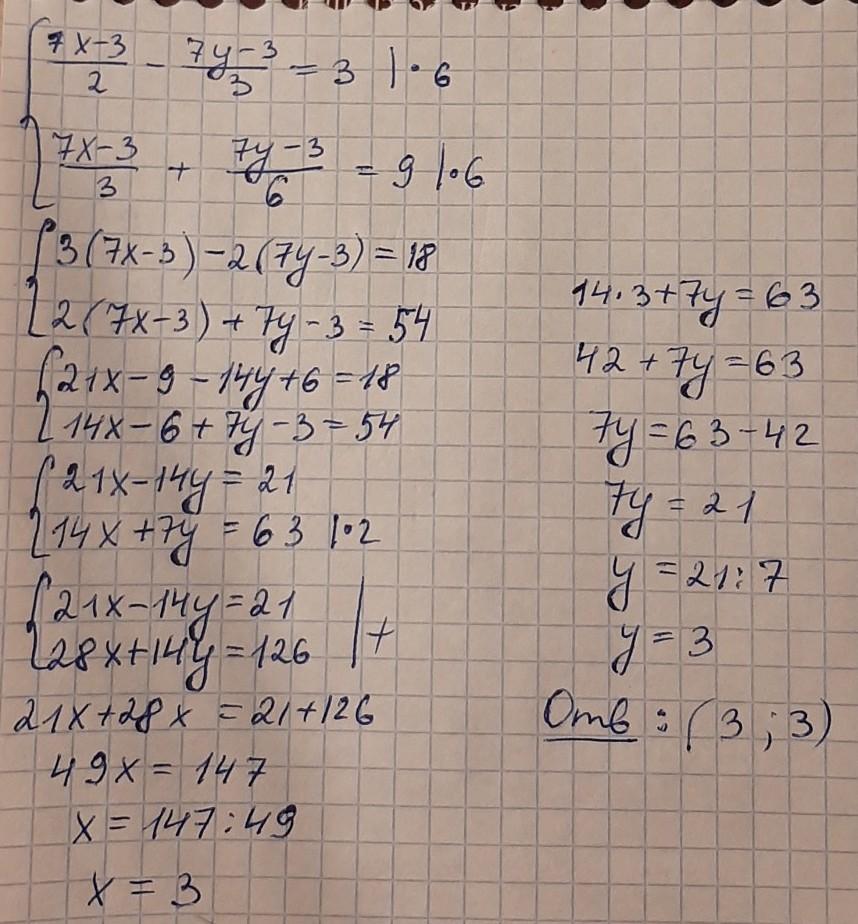 { (7x-3)/2 - (7y-3)/3 = 3 |·6
(7x-3)/3 + (7y-3)/6 = 9 |·6
{ 3(7x-3)-2(7y-3)=18
2(7x-3)+7y-3=54
{ 21x-9-14y+6=18
14x-6+7y-3=54
{ 21x-14y=21
14x+7y=63 |·2
{ 21x-14y=21
28x+14y=126 | +
21x+28x=21+126
49x=147
x=147:49
x=3
14·3+7y=63
42+7y=63
7y=63-42
7y=21
y=21:7
y=3
Отв: (3;3)